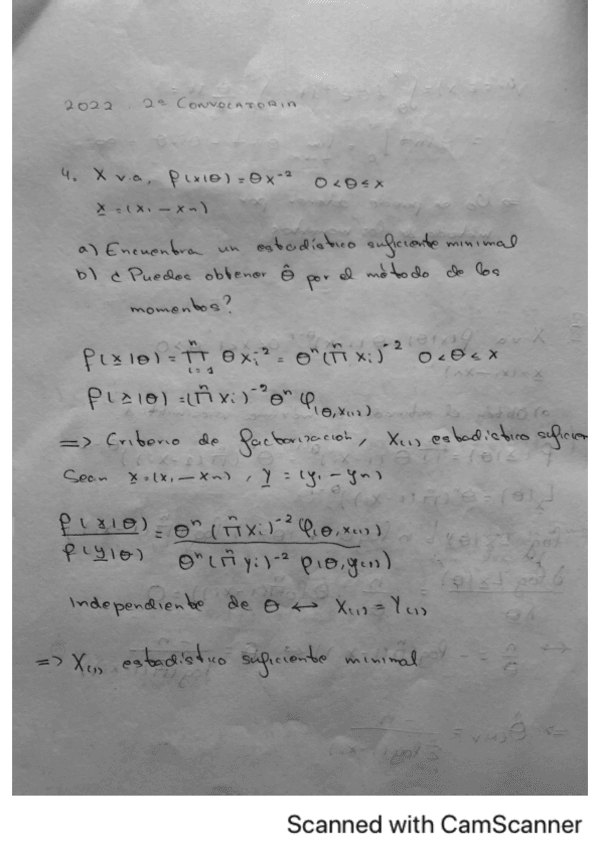 2022 2ª CONVOCATORIA
4. X v.a. f(x|θ) = θx⁻² 0<θ≤x
x = (x₁ - xn)
a) Encuentra un estadístico suficiente minimal
b) ¿ Puedes obtener θ̂ por el método de los
momentos?
f(x|θ) = ∏ⁿᵢ₌₁ θxᵢ⁻² = θⁿ(∏ⁿ xᵢ)⁻² 0<θ<x
f(x|θ) = (∏ⁿ xᵢ)⁻² θⁿ φ(θ, x₍₁₎)
=> Criterio de factorización, X₍₁₎ estadístico suficien
Sean x = (x₁ - xn), y = (y₁ - yn)
f(x|θ) / f(y|θ) = θⁿ (∏ⁿ xᵢ)⁻² φ(θ, x₍₁₎) / θⁿ (∏ⁿ yᵢ)⁻² φ(θ, y₍₁₎)
Independiente de θ ↔ X₍₁₎ = Y₍₁₎
=> X₍₁₎ estadístico suficiente minimal
Scanned with CamScanner